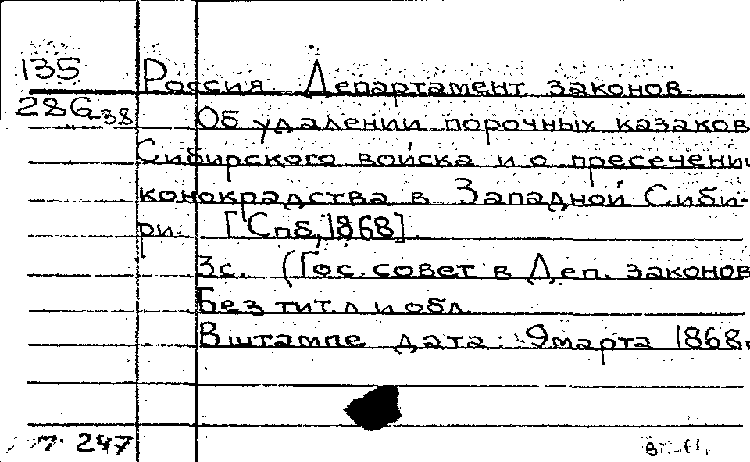 135 Россия. Департамент законов.
28G38 Об удалении порочных казаков
Сибирского войска и о пресечении
конокрадства в Западной Сиби-
ри. [Спб, 1868].
3с. (Гос. совет в Деп. законов
Без тит. л и обл.
В штампе дата: 9 марта 1868г.
247